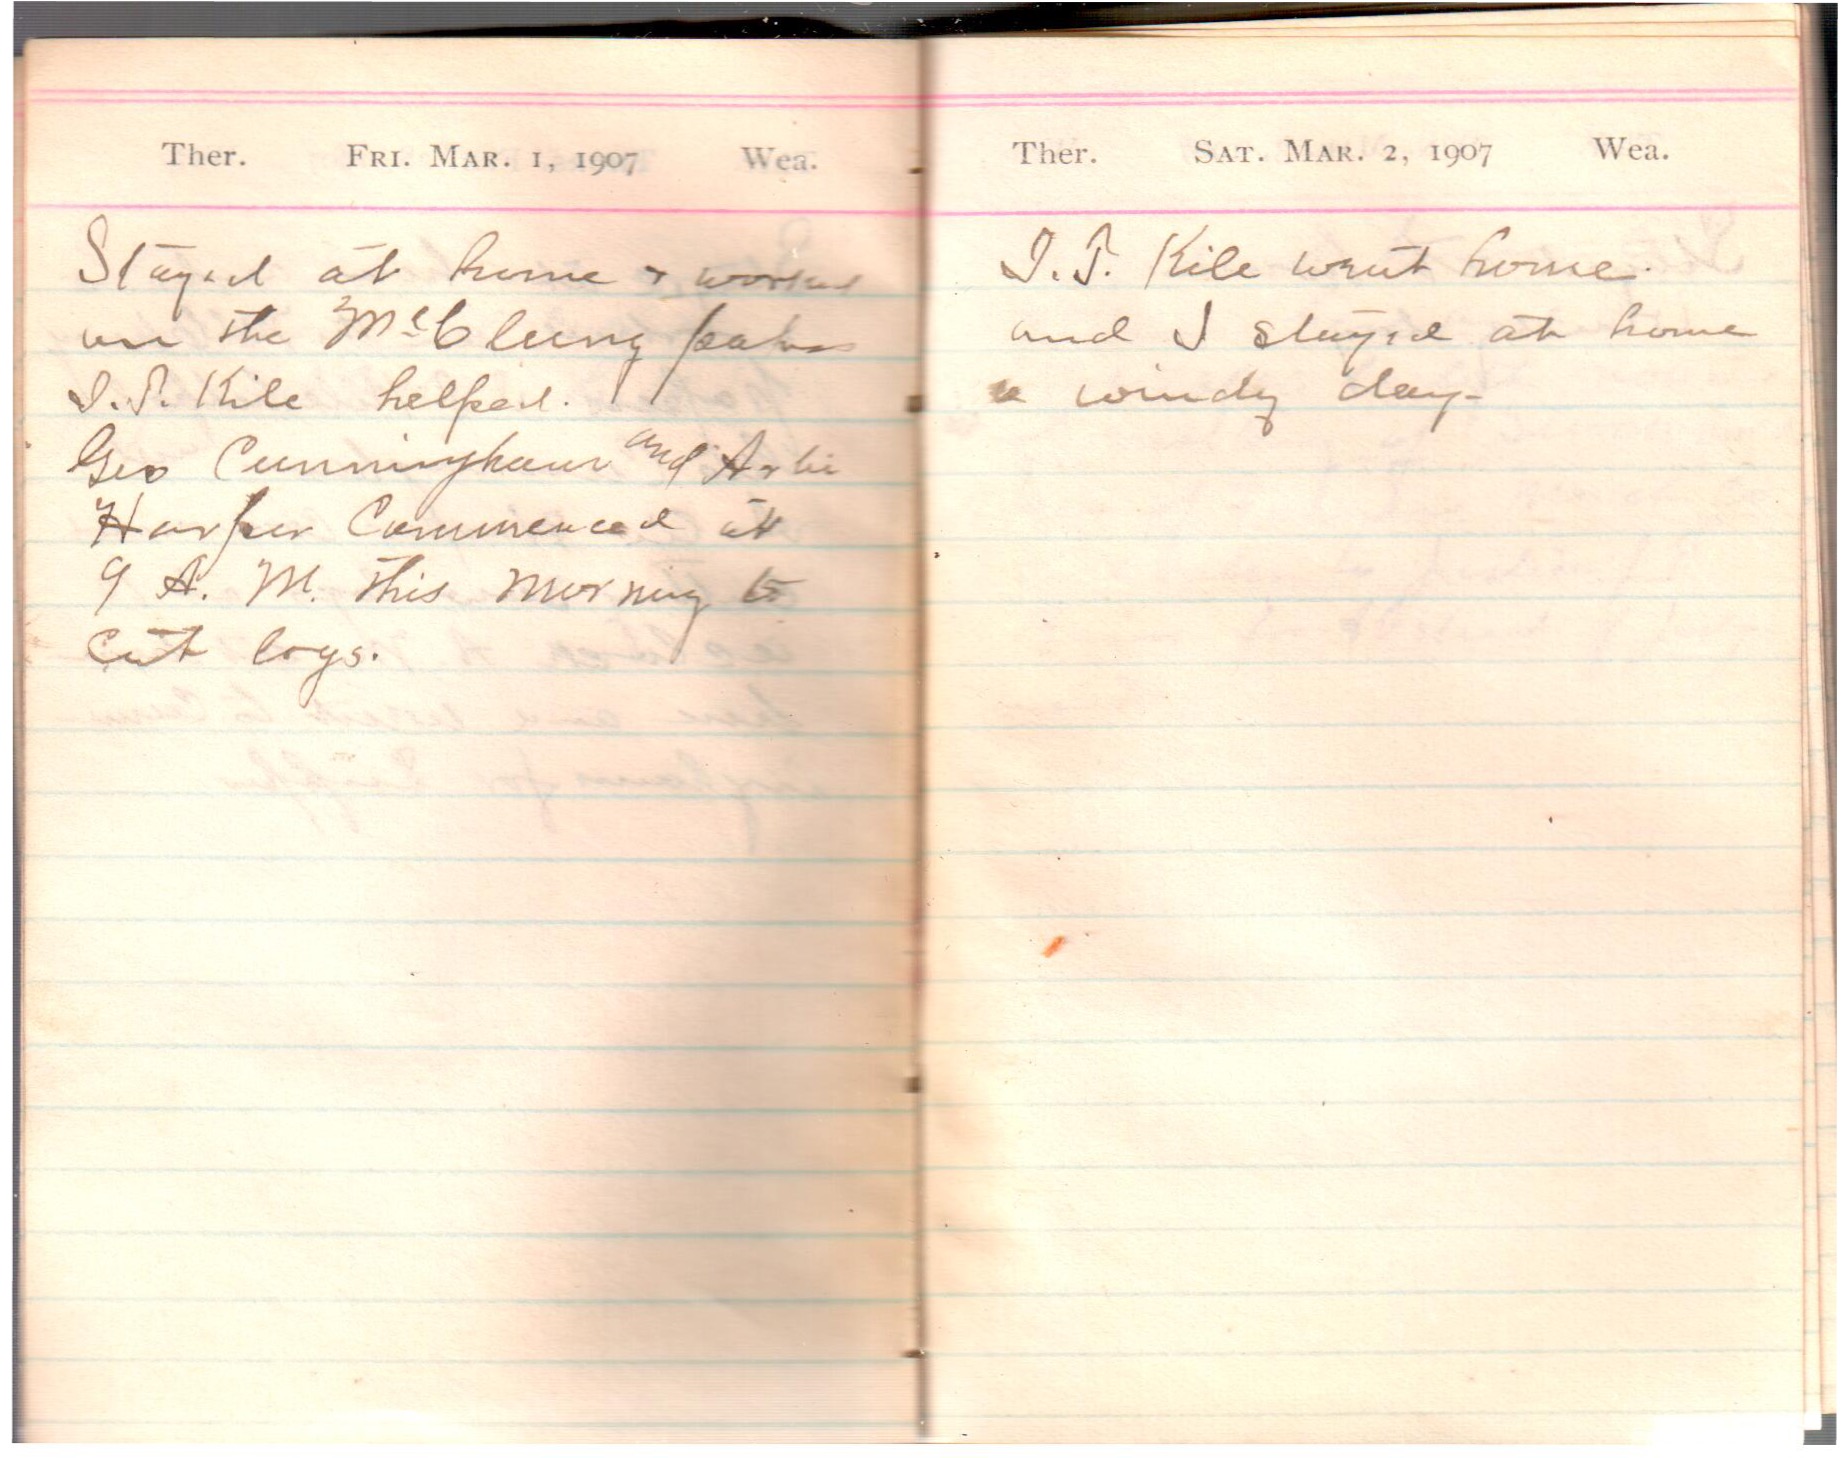 Ther. FRI. MAR. 1, 1907 Wea.
Stayed at home & worked
on the McClung
I. J. Kile helped.
Geo Cunningham and
Harper Commenced at
9 A. M. this morning to
cut logs.
Ther. SAT. MAR. 2, 1907 Wea.
I. J. Kile went home.
and I stayed at home
a windy day-